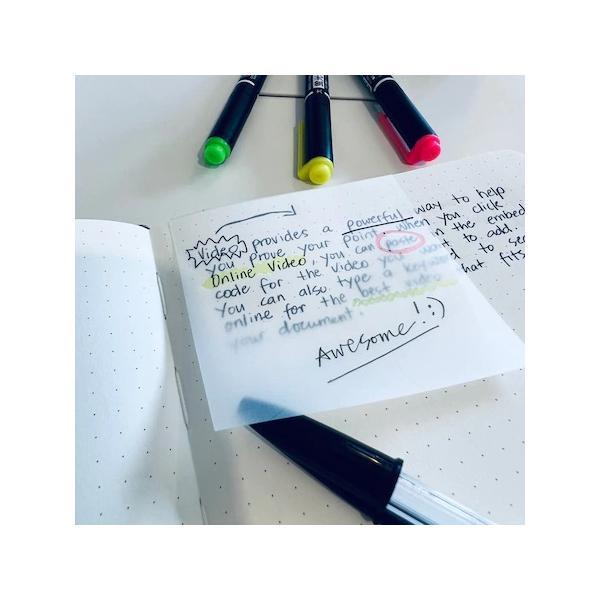 Video provides a powerful way to help
you prove your point. When you click
Online Video, you can paste in the embed
code for the video you want to add.
You can also type a keyword to
online for the best video that fits
your document.
Awesome! :)